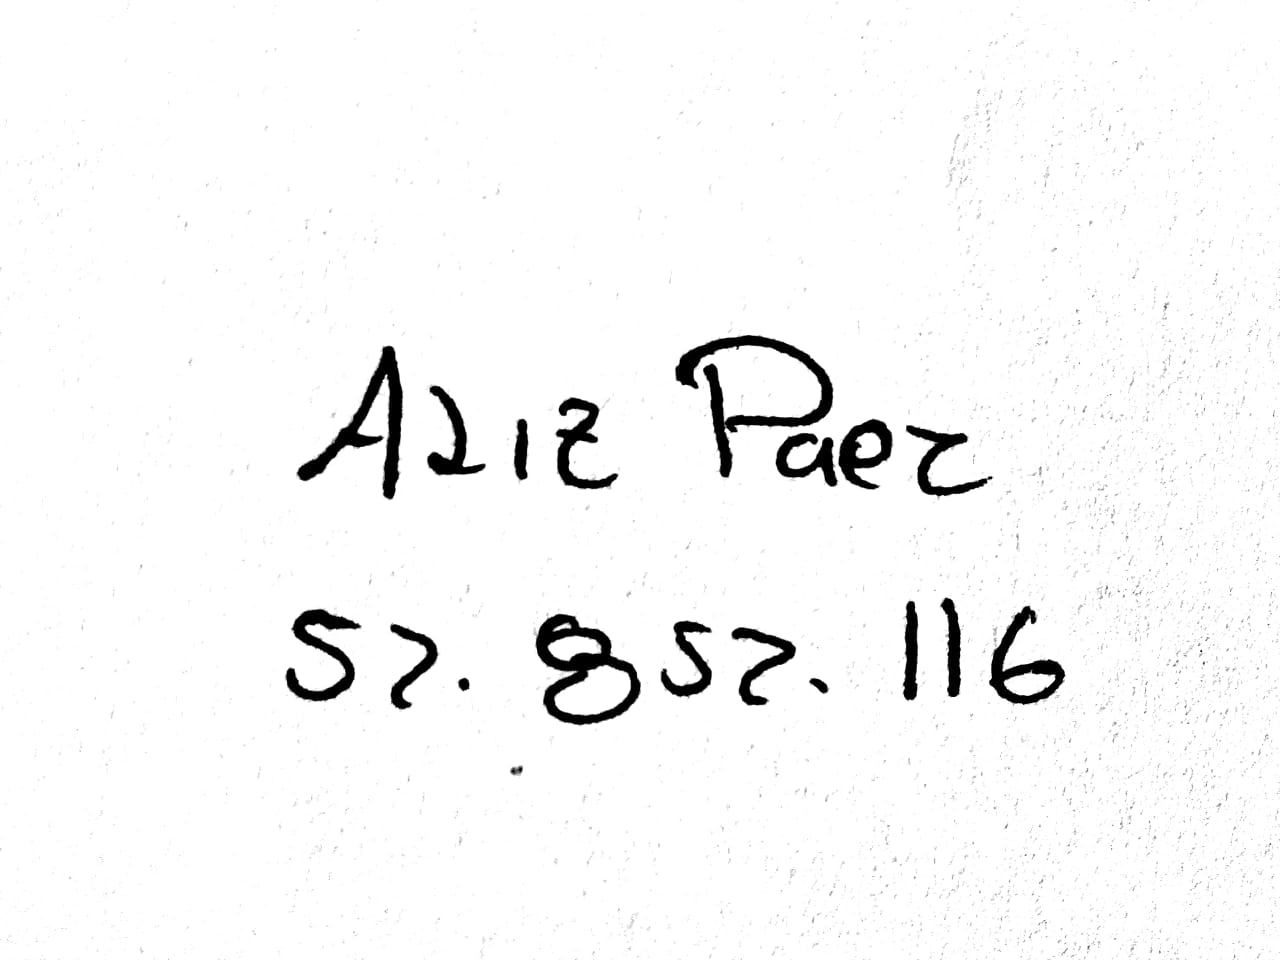 Aziz Paez
52.852.116